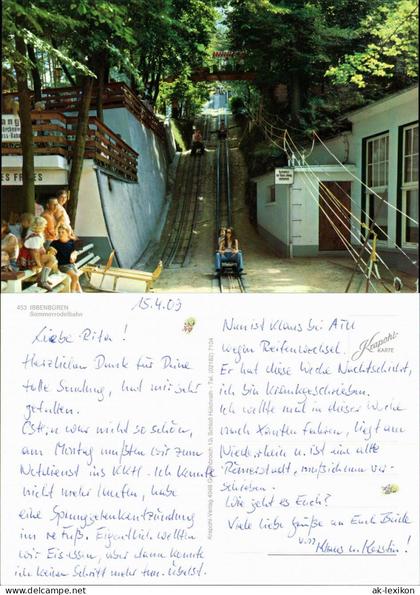 ES FREI
453 IBBENBÜREN
Sommerrodelbahn
15.4.09
Liebe Rita!
Herzlichen Dank für Deine
tolle Sendung, hat mir sehr
gefallen.
Ostern war nicht so schön,
am Montag mußten wir zum
Notdienst ins KKH. Ich konnte
nicht mehr laufen, habe
eine Sprunggelenkentzündung
im re Fuß. Eigentlich wollten
wir Eis-essen, aber dann konnte
ich keinen Schritt mehr tun. Übelst.
Krapohl-Verlag
Nun ist Klaus bei ATU
wegen Reifenwechsel.
Krapohl-
KARTE
Er hat diese Woche Nachtschicht,
ich bin krankgeschrieben.
Ich wollte mal in dieser Woche
nach Xanten fahren, liegt am
Niederrhein u. ist eine alte
Römerstadt, muß ich nun ver-
schieben.
Wie geht es Euch?
Viele liebe Grüße an Euch Beide
von
Klaus u. Kerstin!
© ak-lexikon